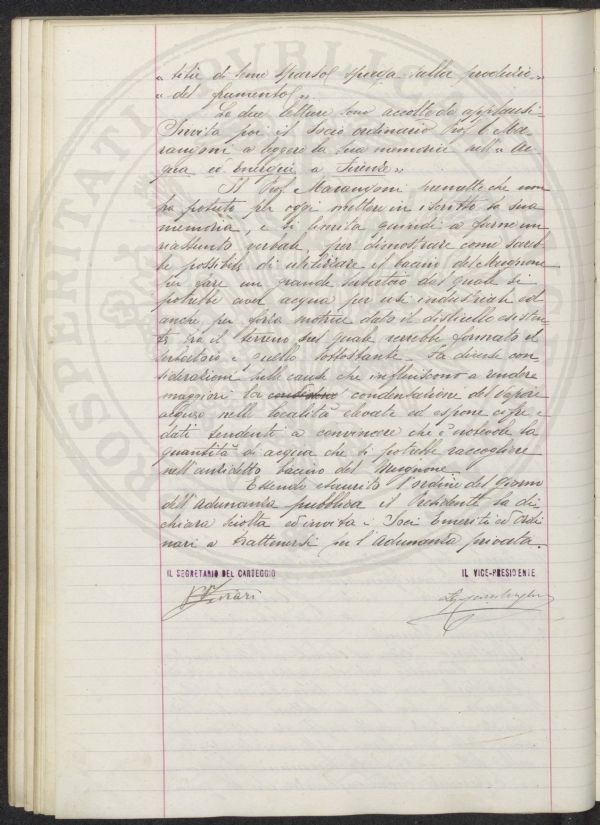 « tità di seme sparso, spesa sulla produzio- »
« del frumento ».
Le due letture sono accolte da applausi.
Invita poi il Socio ordinario Prof. C. Ma-
rangoni a leggere la sua memoria sull' « Ac-
qua ed Energia a Firenze ».
Il Prof. Marangoni premette che non
ha potuto per oggi mettere in iscritto la sua
memoria, e si limita quindi a farne un
riassunto verbale, per dimostrare come sareb-
be possibile di utilizzare il bacino del Mugnone
per fare un grande serbatoio dal quale si
potrebbe aver acqua per usi industriali ed
anche per forza motrice dato il dislivello esisten-
te tra il terreno sul quale verrebbe formato il
serbatoio e quello sottostante. Fa diverse con-
siderazioni sulle cause che influiscono a rendere
maggiori la condensazione del vapor
acqueo nelle località elevate ed espone cifre e
dati tendenti a convincere che è notevole la
quantità di acqua che si potrebbe raccogliere
nell'anzidetto bacino del Mugnone.
Essendo esaurito l'ordine del giorno
dell'Adunanza pubblica il Presidente la di-
chiara sciolta ed invita i Soci Emeriti ed Ordi-
nari a trattenersi per l'Adunanza privata.
IL SEGRETARIO DEL CARTEGGIO
IL VICE-PRESIDENTE
PROSPERITATI PUBLICAE